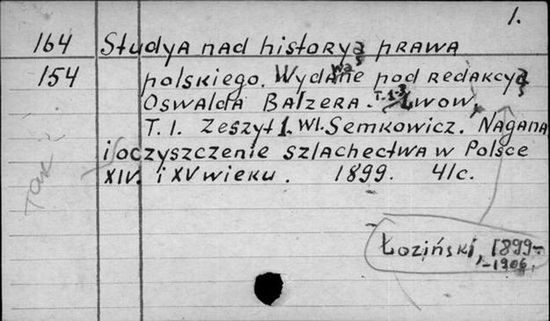 1.
164 Studya nad historyą prawa
154 polskiego. Wydawane pod redakcyą
Oswalda Balzera. T.1-3 Lwow,
T. I. Zeszyt 1. Wl. Semkowicz. Nagana
i oczyszczenie szlachectwa w Polsce
XIV. i XV wieku. 1899. 41c.
Tak
Łoziński, 1899-
-1906,